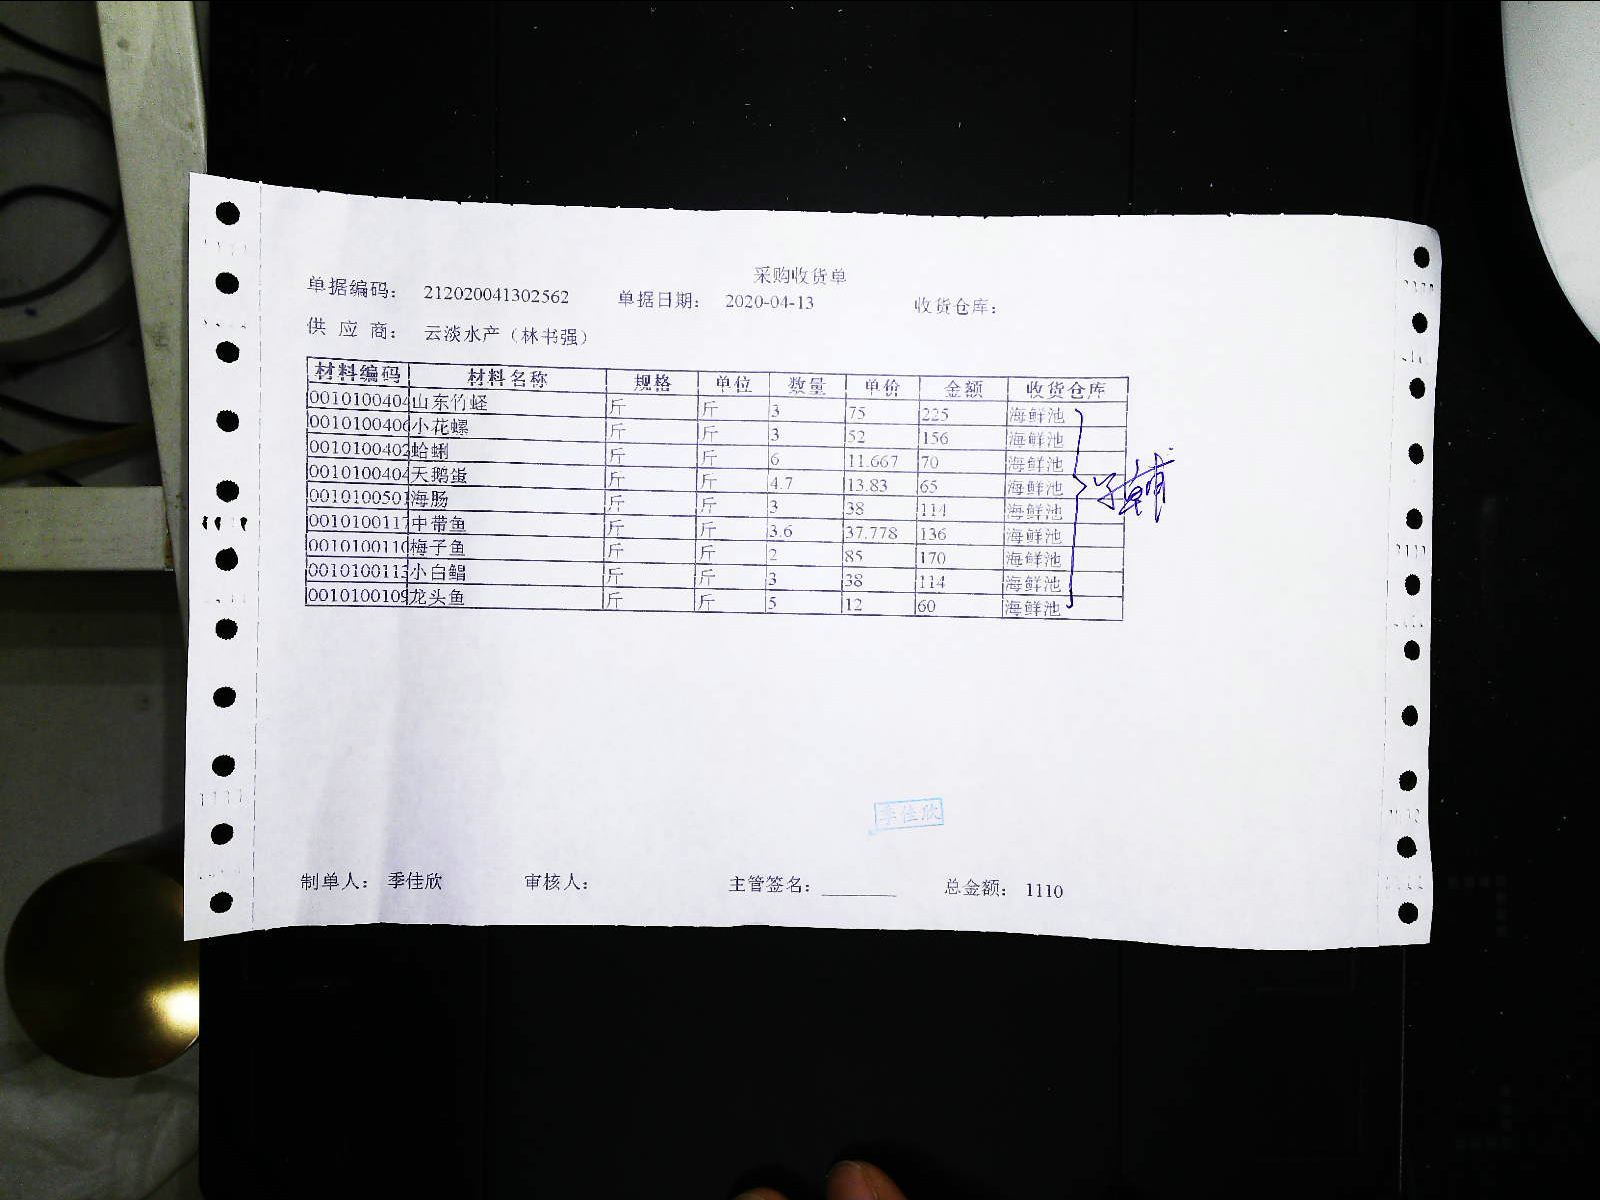 采购收货单
单据编码： 212020041302562 单据日期： 2020-04-13 收货仓库：
供 应 商： 云淡水产（林书强）
材料编码 材料名称 规格 单位 数量 单价 金额 收货仓库
0010100404 山东竹蛏 斤 斤 3 75 225 海鲜池
0010100406 小花螺 斤 斤 3 52 156 海鲜池
0010100402 蛤蜊 斤 斤 6 11.667 70 海鲜池
0010100404 天鹅蛋 斤 斤 4.7 13.83 65 海鲜池
0010100501 海肠 斤 斤 3 38 114 海鲜池
0010100117 中带鱼 斤 斤 3.6 37.778 136 海鲜池
0010100110 梅子鱼 斤 斤 2 85 170 海鲜池
0010100113 小白鲳 斤 斤 3 38 114 海鲜池
0010100109 龙头鱼 斤 斤 5 12 60 海鲜池
季佳欣
制单人： 季佳欣 审核人： 主管签名： 总金额： 1110